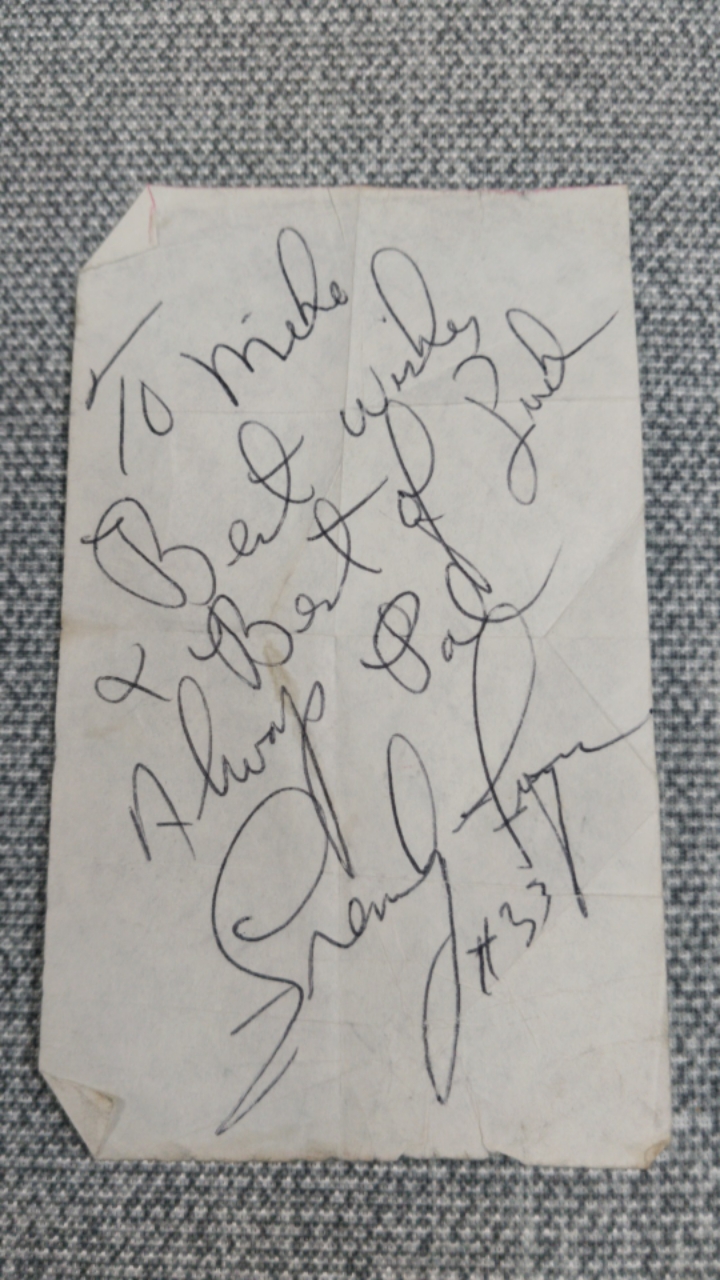 To Mike
Best Wishes
& Best of Luck
Always Pal
#33